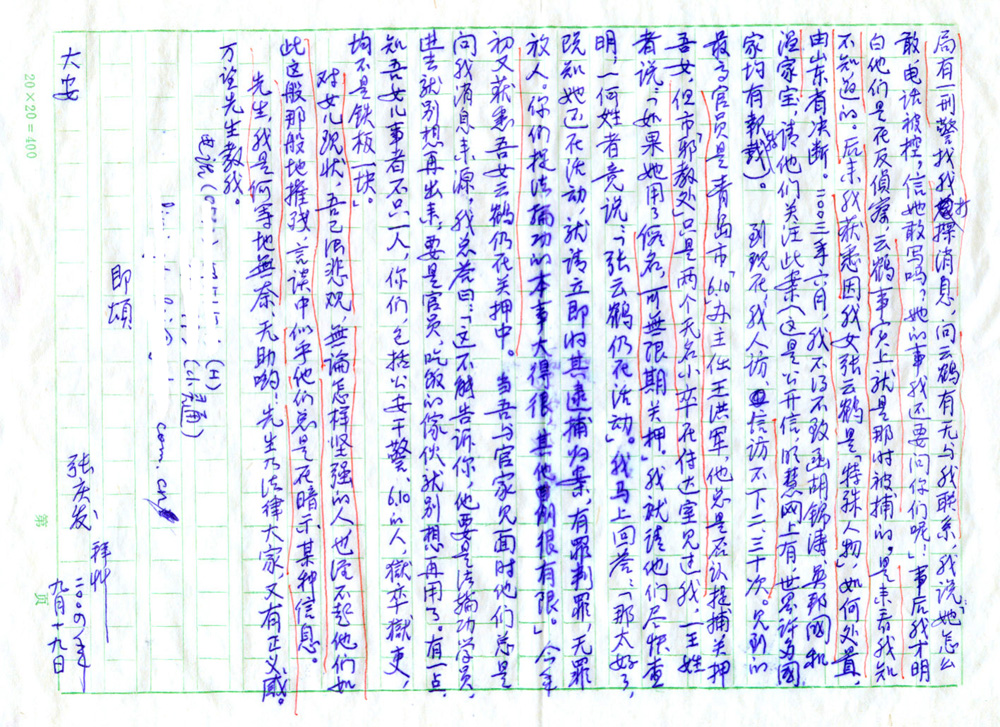 局有一刑警找我打探消息,问云鹤有无与我联系,我说:“她怎么
敢,电话被控,信她敢写吗?她的事我还要问你们呢!”事后我才明
白他们是在反侦察,云鹤事实上就是那时被捕的。是来看我知
不知道的。后来我获悉因我女张云鹤是“特殊人物”,如何处置,
由山东省决断。二〇〇三年六月,我不得不致函胡锦涛、吴邦国和
温家宝,请他们关注此案(这是公开信明慧网上有世界许多国
家均有转载)。 到现在,我人访、信访不下二、三十次。见到的
最高官员是青岛市“6.10”办主任王洪军,他总是否认逮捕关押
吾女,但市“邪教处”只是两个无名小卒在付达室见过我,一王姓
者说:“如果她用了假名,可無限期关押。”我就请他们尽快查
明,一何姓者竟说:“张云鹤仍在活动”。我马上回答:“那太好了,
既知她还在活动,就请立即将其逮捕归案,有罪判罪,无罪
放人。你们捉法轮功的本事大得很,其他则很有限。”今年
初又获悉吾女云鹤仍在关押中。 当吾与官家见面时他们总是
问我消息来源,我总答曰:“这不能告诉你,他要是法轮功学员,
进去就别想再出来,要是官员,吃饭的傢伙就别想再用了。有一点,
知吾女儿事者不只一人,你们包括公安干警、6.10的人,獄卒獄吏,
均不是铁板一块。”
对女儿现状,吾已很悲观,無論怎样坚强的人也经不起他们如
此这般那般地摧残,言谈中似乎他们总是在暗示某种信息。
先生,我是何等地無奈、无助哟!先生乃法律大家,又有正义感。
万望先生教我。
电话
(H)
(小灵通)
com.cn
即頌
大安
张庆发 拜艸
二〇〇四年
九月十九日
第 页
20×20=400